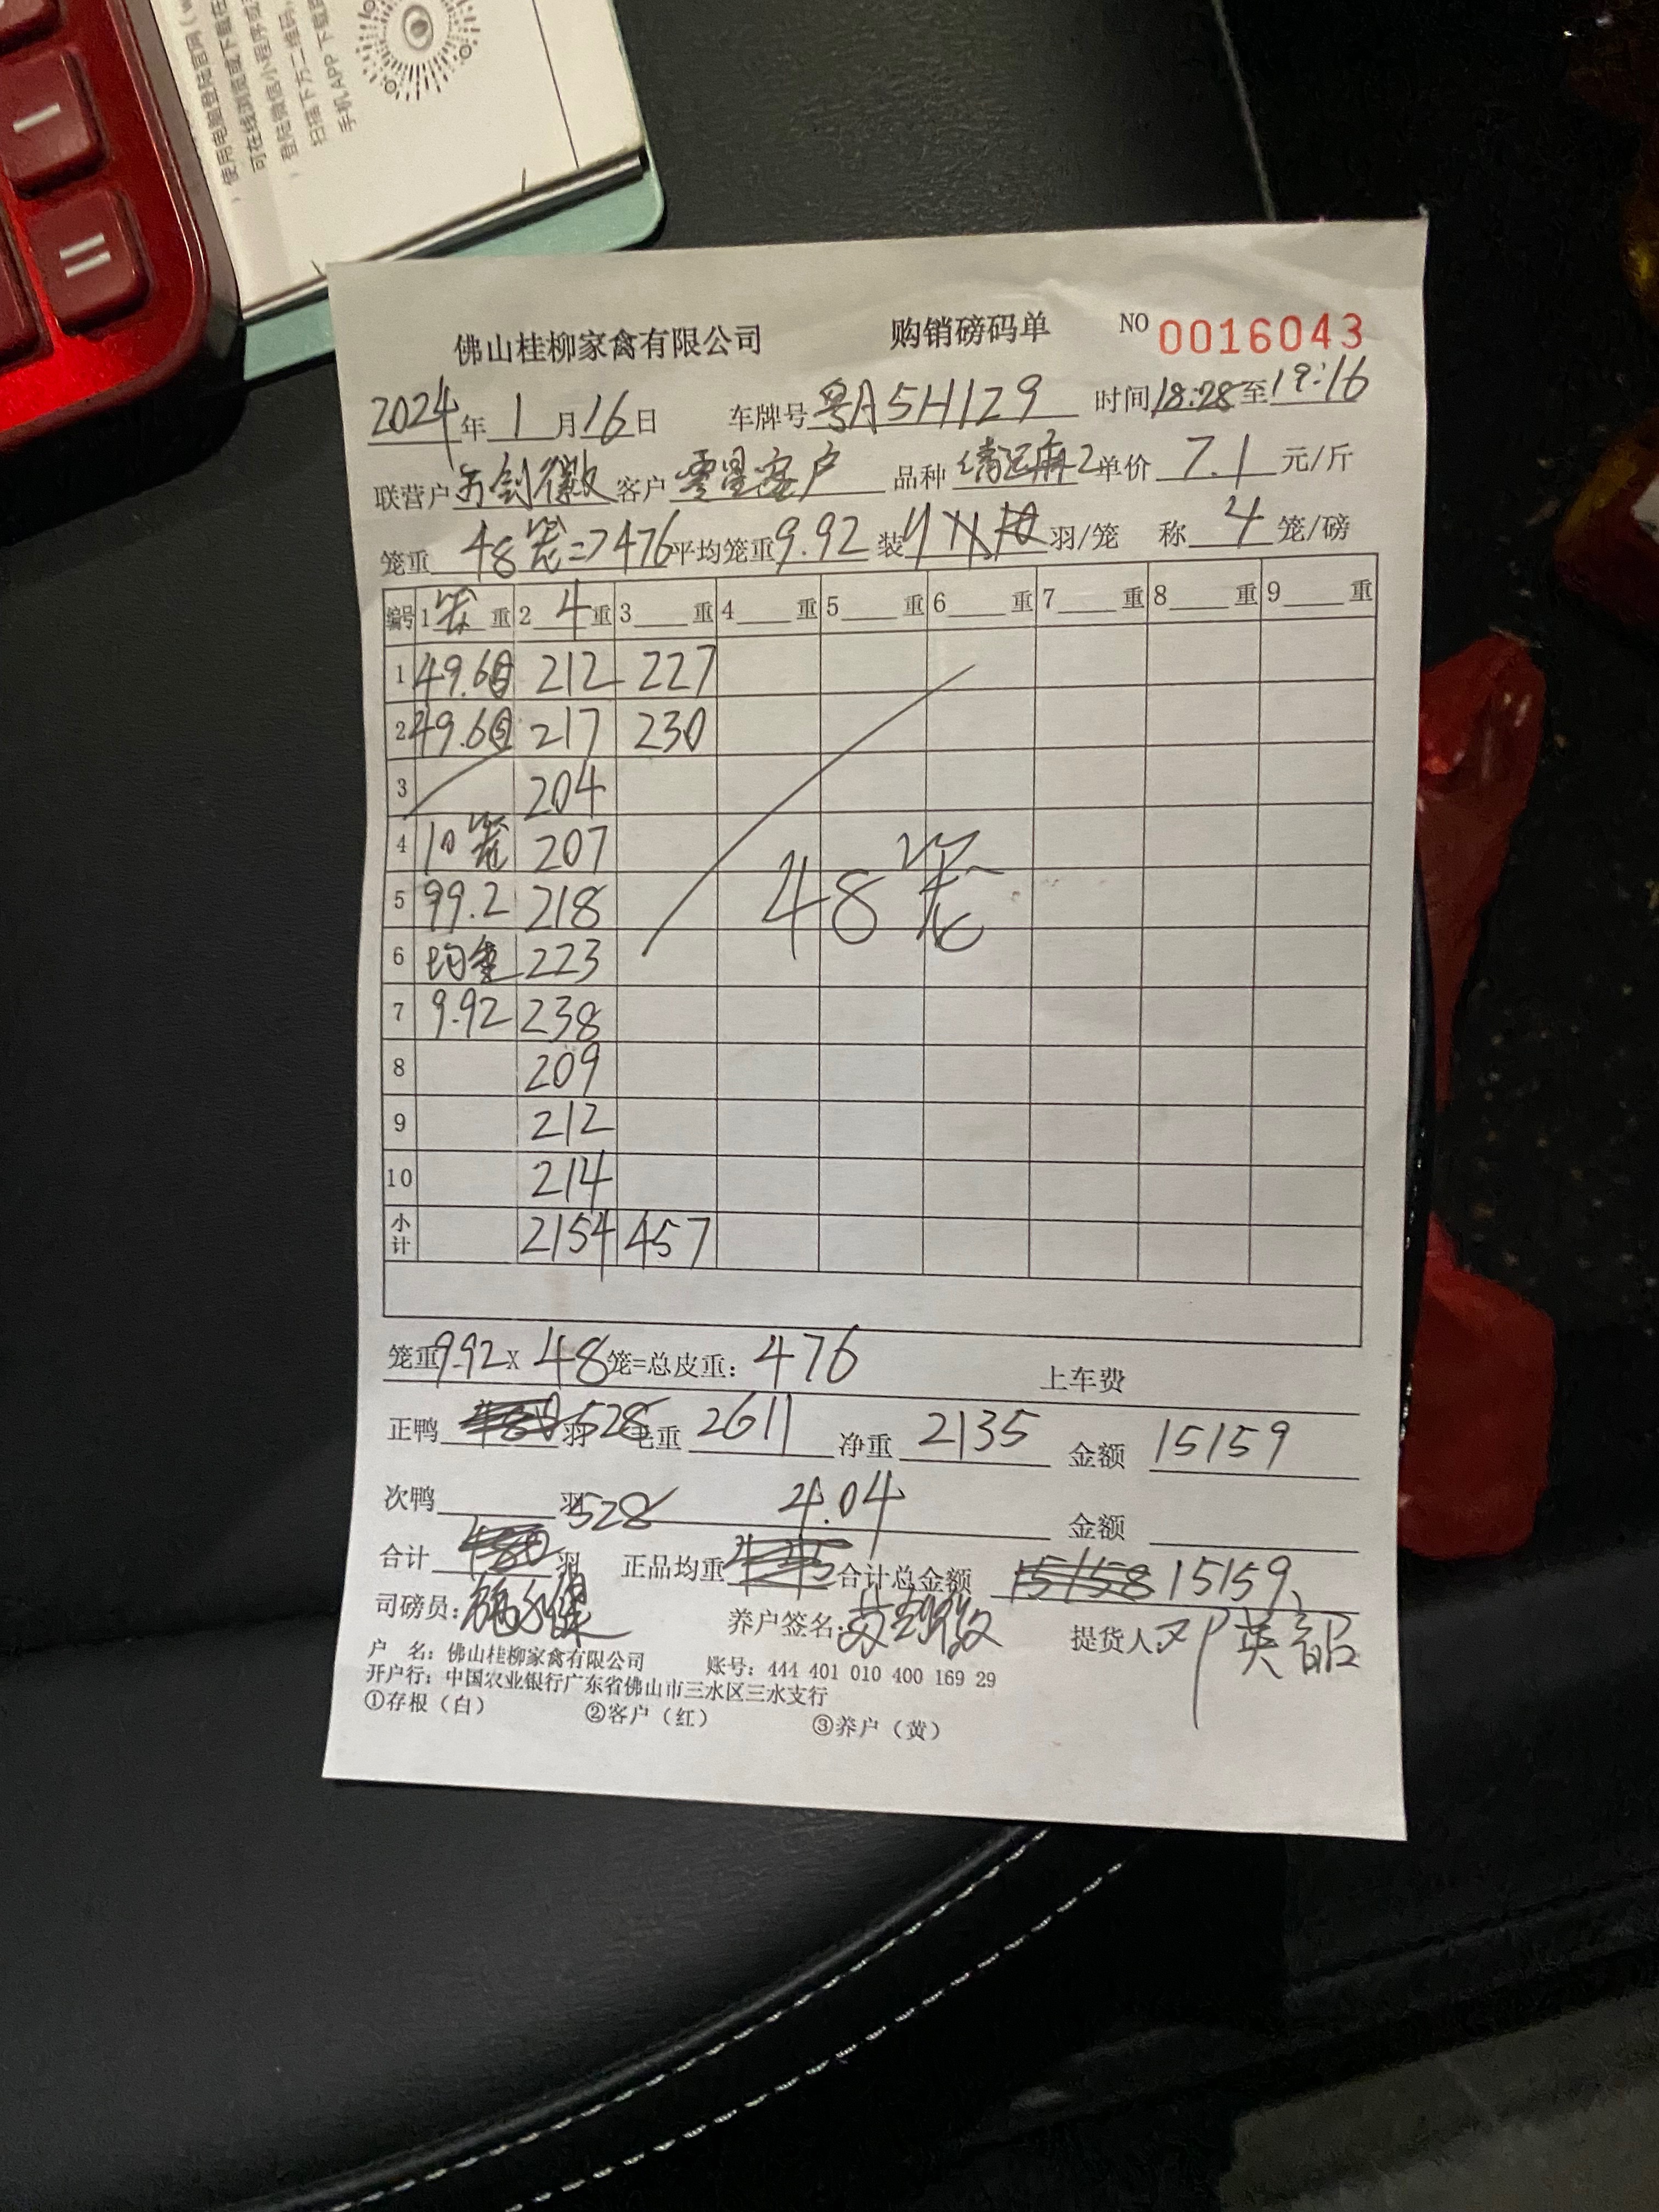 使用电脑登陆官网（w
可在线浏览或下载在
登陆微信小程序或
扫描下方二维码,
手机APP下载
佛山桂柳家禽有限公司 购销磅码单 NO 0016043
2024年 1月16日 车牌号 粤A5H129 时间18:28至19:16
联营户 客户 零星客户 品种 清远麻2 单价 7.1 元/斤
笼重 48笼=>476 平均笼重9.92 装 11 羽/笼 称 4 笼/磅
编号 1 笼 重 2 4 重 3 重 4 重 5 重 6 重 7 重 8 重 9 重
1 49.6⑤ 212 227
2 49.6⑤ 217 230
3 204
4 10笼 207
5 99.2 218
6 均重 223
7 9.92 238
8 209
9 212
10 214
48笼
小计 2154 457
笼重9.92 x 48笼=总皮重: 476 上车费
正鸭 480 羽 528 毛重 2611 净重 2135 金额 15159
次鸭 羽 528 4.04 金额
合计 480 羽 正品均重 4.45 合计总金额 15158 15159
司磅员: 养户签名: 提货人: 邓英韶
户 名: 佛山桂柳家禽有限公司 账号: 444 401 010 400 169 29
开户行: 中国农业银行广东省佛山市三水区三水支行
①存根（白） ②客户（红） ③养户（黄）